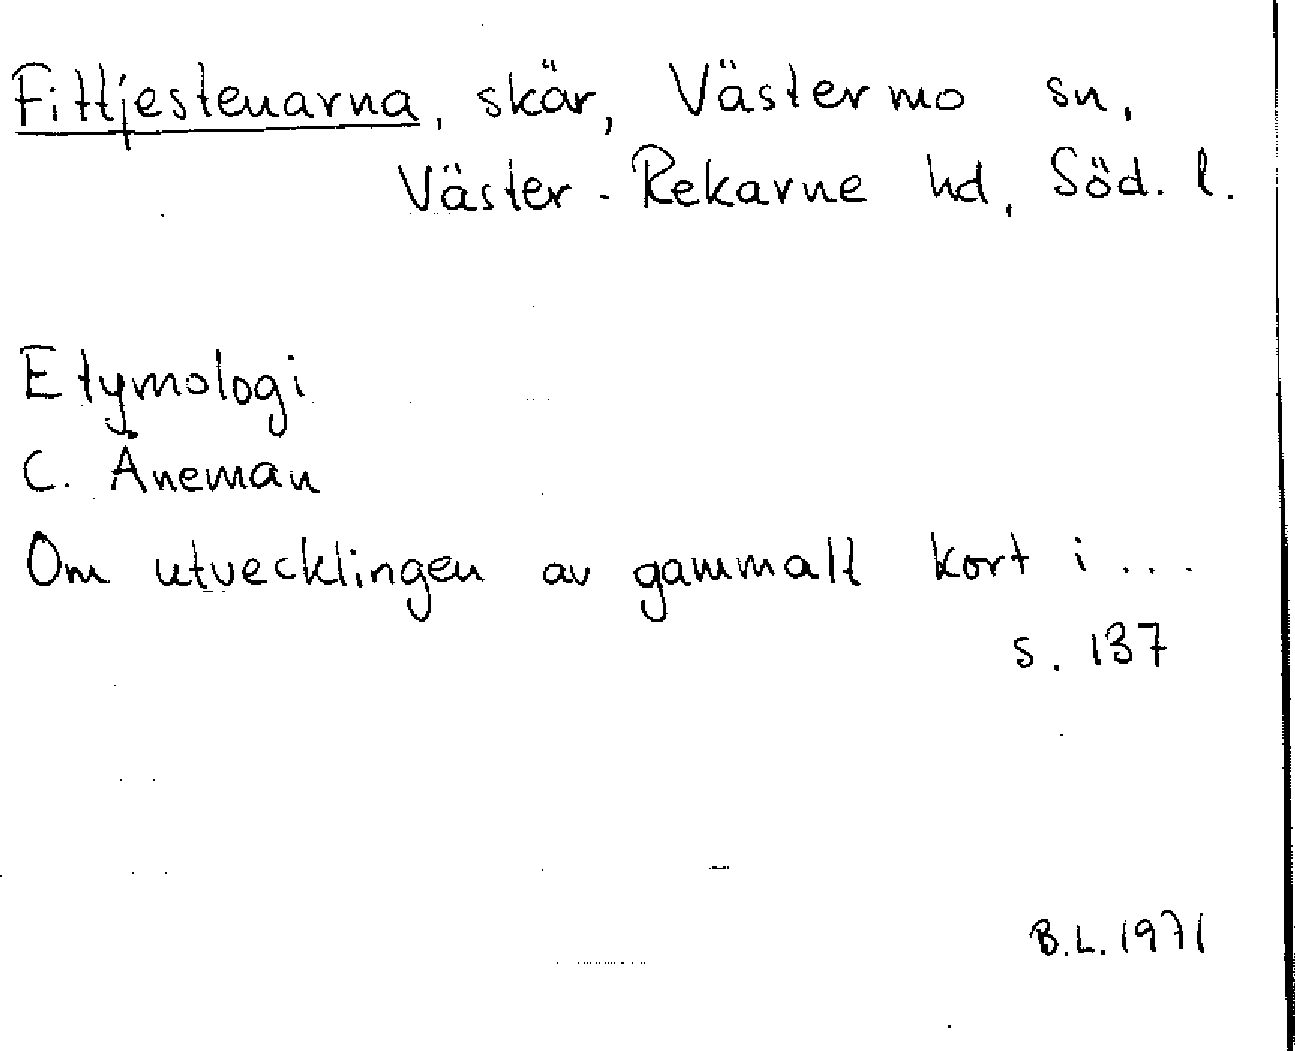 Fittjestenarna, skär, Västermo sn,
Väster-Rekarne hd, Söd. l.
Etymologi
C. Åneman
Om utvecklingen av gammalt kort i ...
s. 137
B.L. 1971